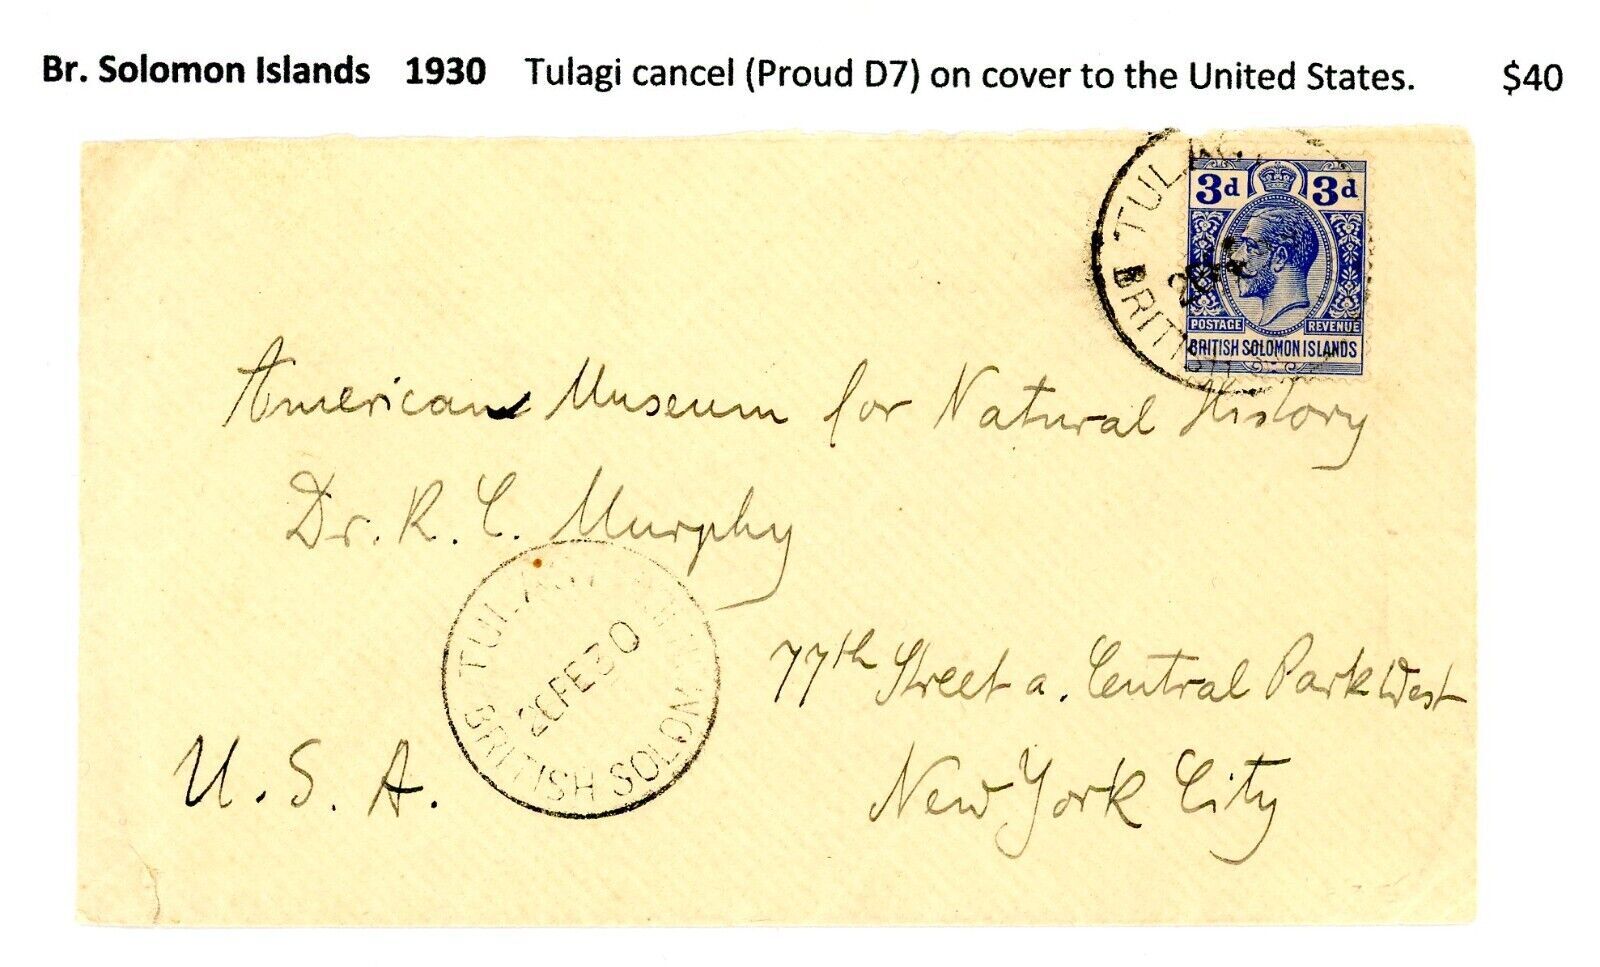 Br. Solomon Islands 1930 Tulagi cancel (Proud D7) on cover to the United States. $40
TULAG
BRITISH
3d 3d
POSTAGE REVENUE
BRITISH SOLOMON ISLANDS
American Museum for Natural History
Dr. R. C. Murphy
TULAGI
FE 30
BRITISH SOLOMON
77th Street a. Central Park West
U. S. A.
New York City